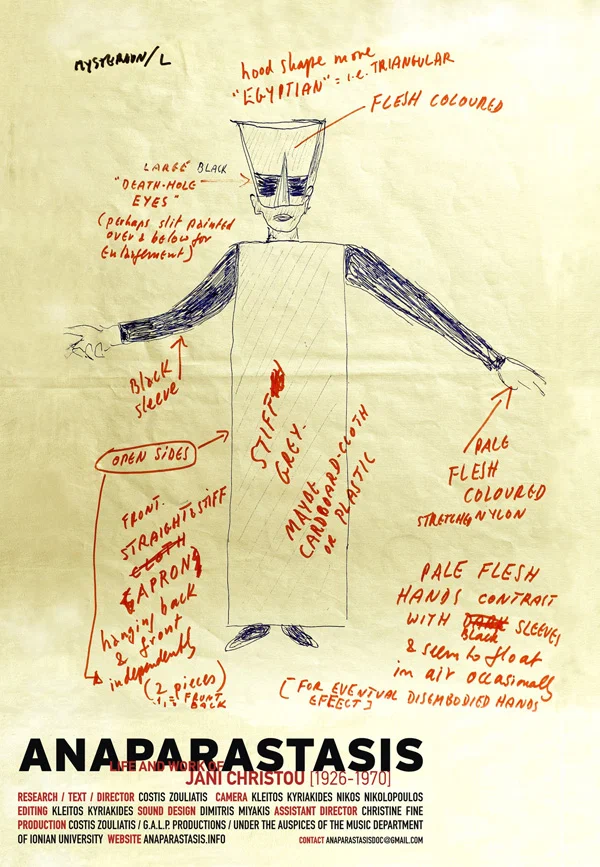 MYSTERION/L
hood shape more
"EGYPTIAN" = i.e. TRIANGULAR
FLESH COLOURED
LARGE BLACK
"DEATH-HOLE
EYES"
(perhaps slit painted
over & below for
Enlargement)
Black
sleeve
OPEN SIDES
STIFF
GREY.
MAYBE
CARDBOARD-CLOTH
OR PLASTIC
PALE
FLESH
COLOURED
STRETCH NYLON
FRONT.
STRAIGHT & STIFF
CLOTH
(APRON)
hanging back
& front
independently
(2 pieces)
FRONT
BACK
PALE FLESH
HANDS CONTRAST
WITH DARK SLEEVES
Black
& seem to float
in air occasionally
[FOR EVENTUAL DISEMBODIED HANDS
EFFECT]
ANAPARASTASIS
LIFE AND WORK OF
JANI CHRISTOU [1926-1970]
RESEARCH / TEXT / DIRECTOR COSTIS ZOULIATIS CAMERA KLEITOS KYRIAKIDES NIKOS NIKOLOPOULOS
EDITING KLEITOS KYRIAKIDES SOUND DESIGN DIMITRIS MIYAKIS ASSISTANT DIRECTOR CHRISTINE FINE
PRODUCTION COSTIS ZOULIATIS / G.A.L.P. PRODUCTIONS / UNDER THE AUSPICES OF THE MUSIC DEPARTMENT
OF IONIAN UNIVERSITY WEBSITE ANAPARASTASIS.INFO
CONTACT ANAPARASTASISDOC@GMAIL.COM